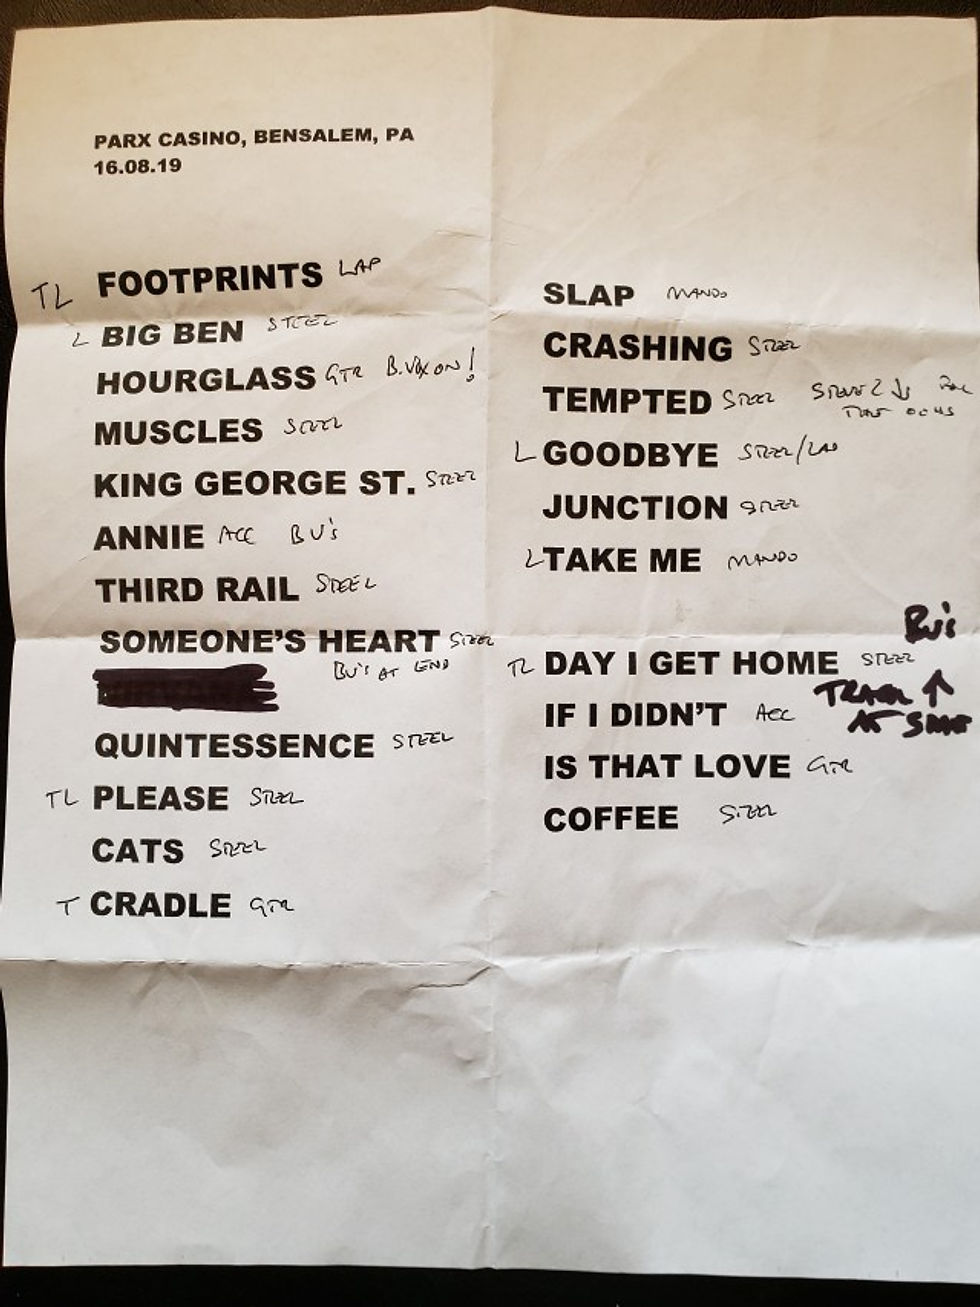 PARX CASINO, BENSALEM, PA
16.08.19
TL FOOTPRINTS LAP
L BIG BEN STEEL
HOURGLASS GTR B.VOX ON!
MUSCLES STEEL
KING GEORGE ST. STEEL
ANNIE ACC BV's
THIRD RAIL STEEL
SOMEONE'S HEART STEEL
BV's AT END
QUINTESSENCE STEEL
TL PLEASE STEEL
CATS STEEL
T CRADLE GTR
SLAP MANDO
CRASHING STEEL
TEMPTED STEEL
L GOODBYE STEEL/LAP
JUNCTION STEEL
L TAKE ME MANDO
BV's
TL DAY I GET HOME STEEL
IF I DIDN'T ACC
IS THAT LOVE GTR
COFFEE STEEL